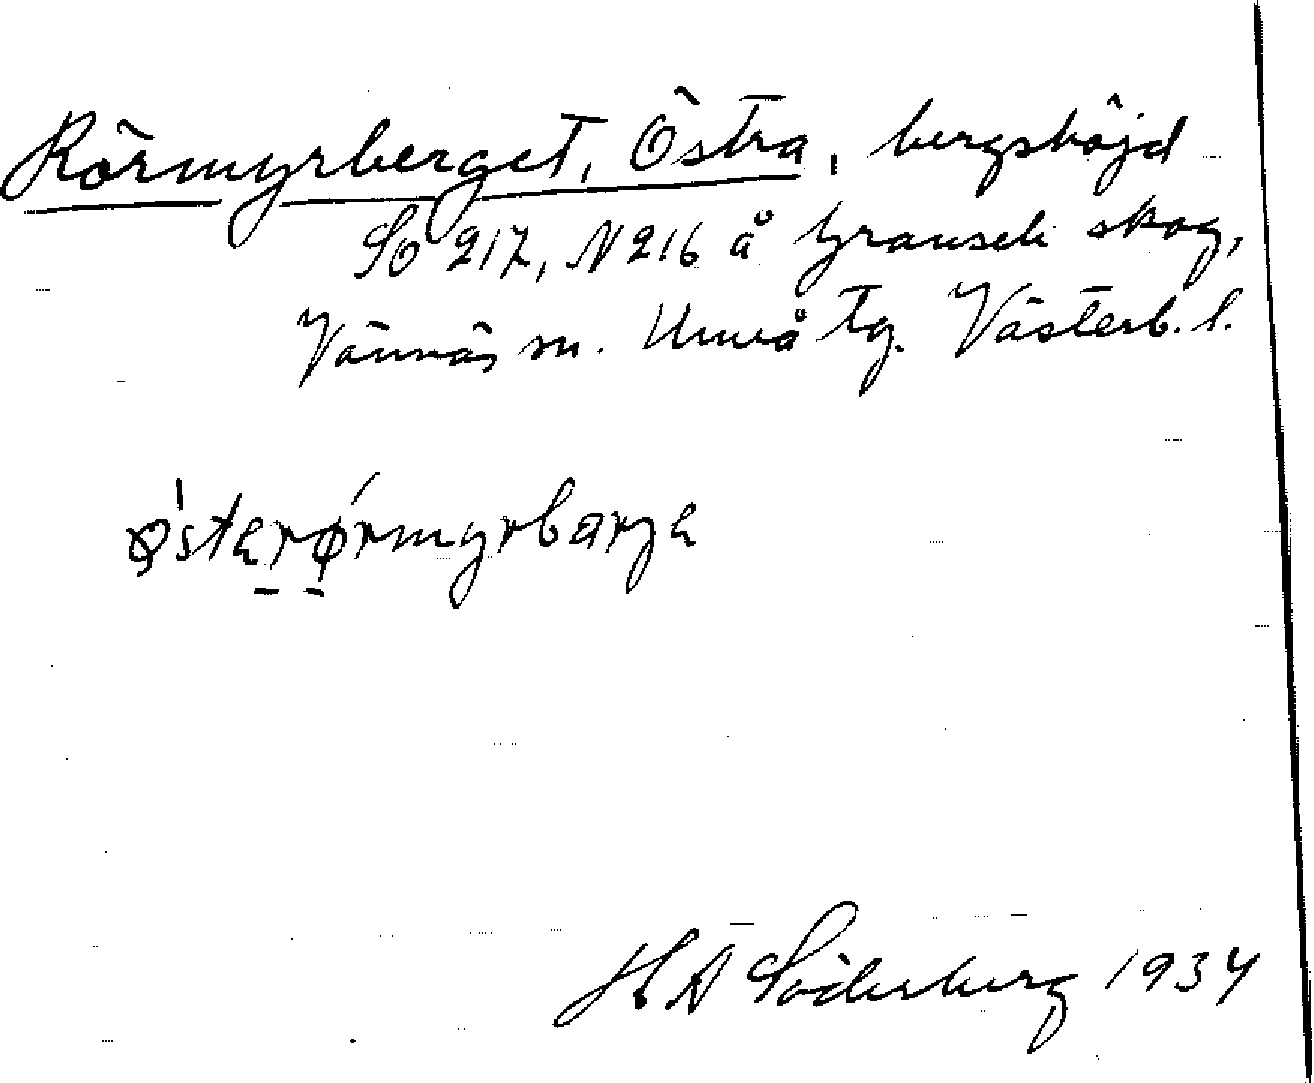 Rörmyrberget, Östra, bergshöjd
So 217, N 216 å Granseli skog,
Vännäs sn. Umeå tg. Västerb. l.
østerørmyrbarje
H A Söderberg 1934